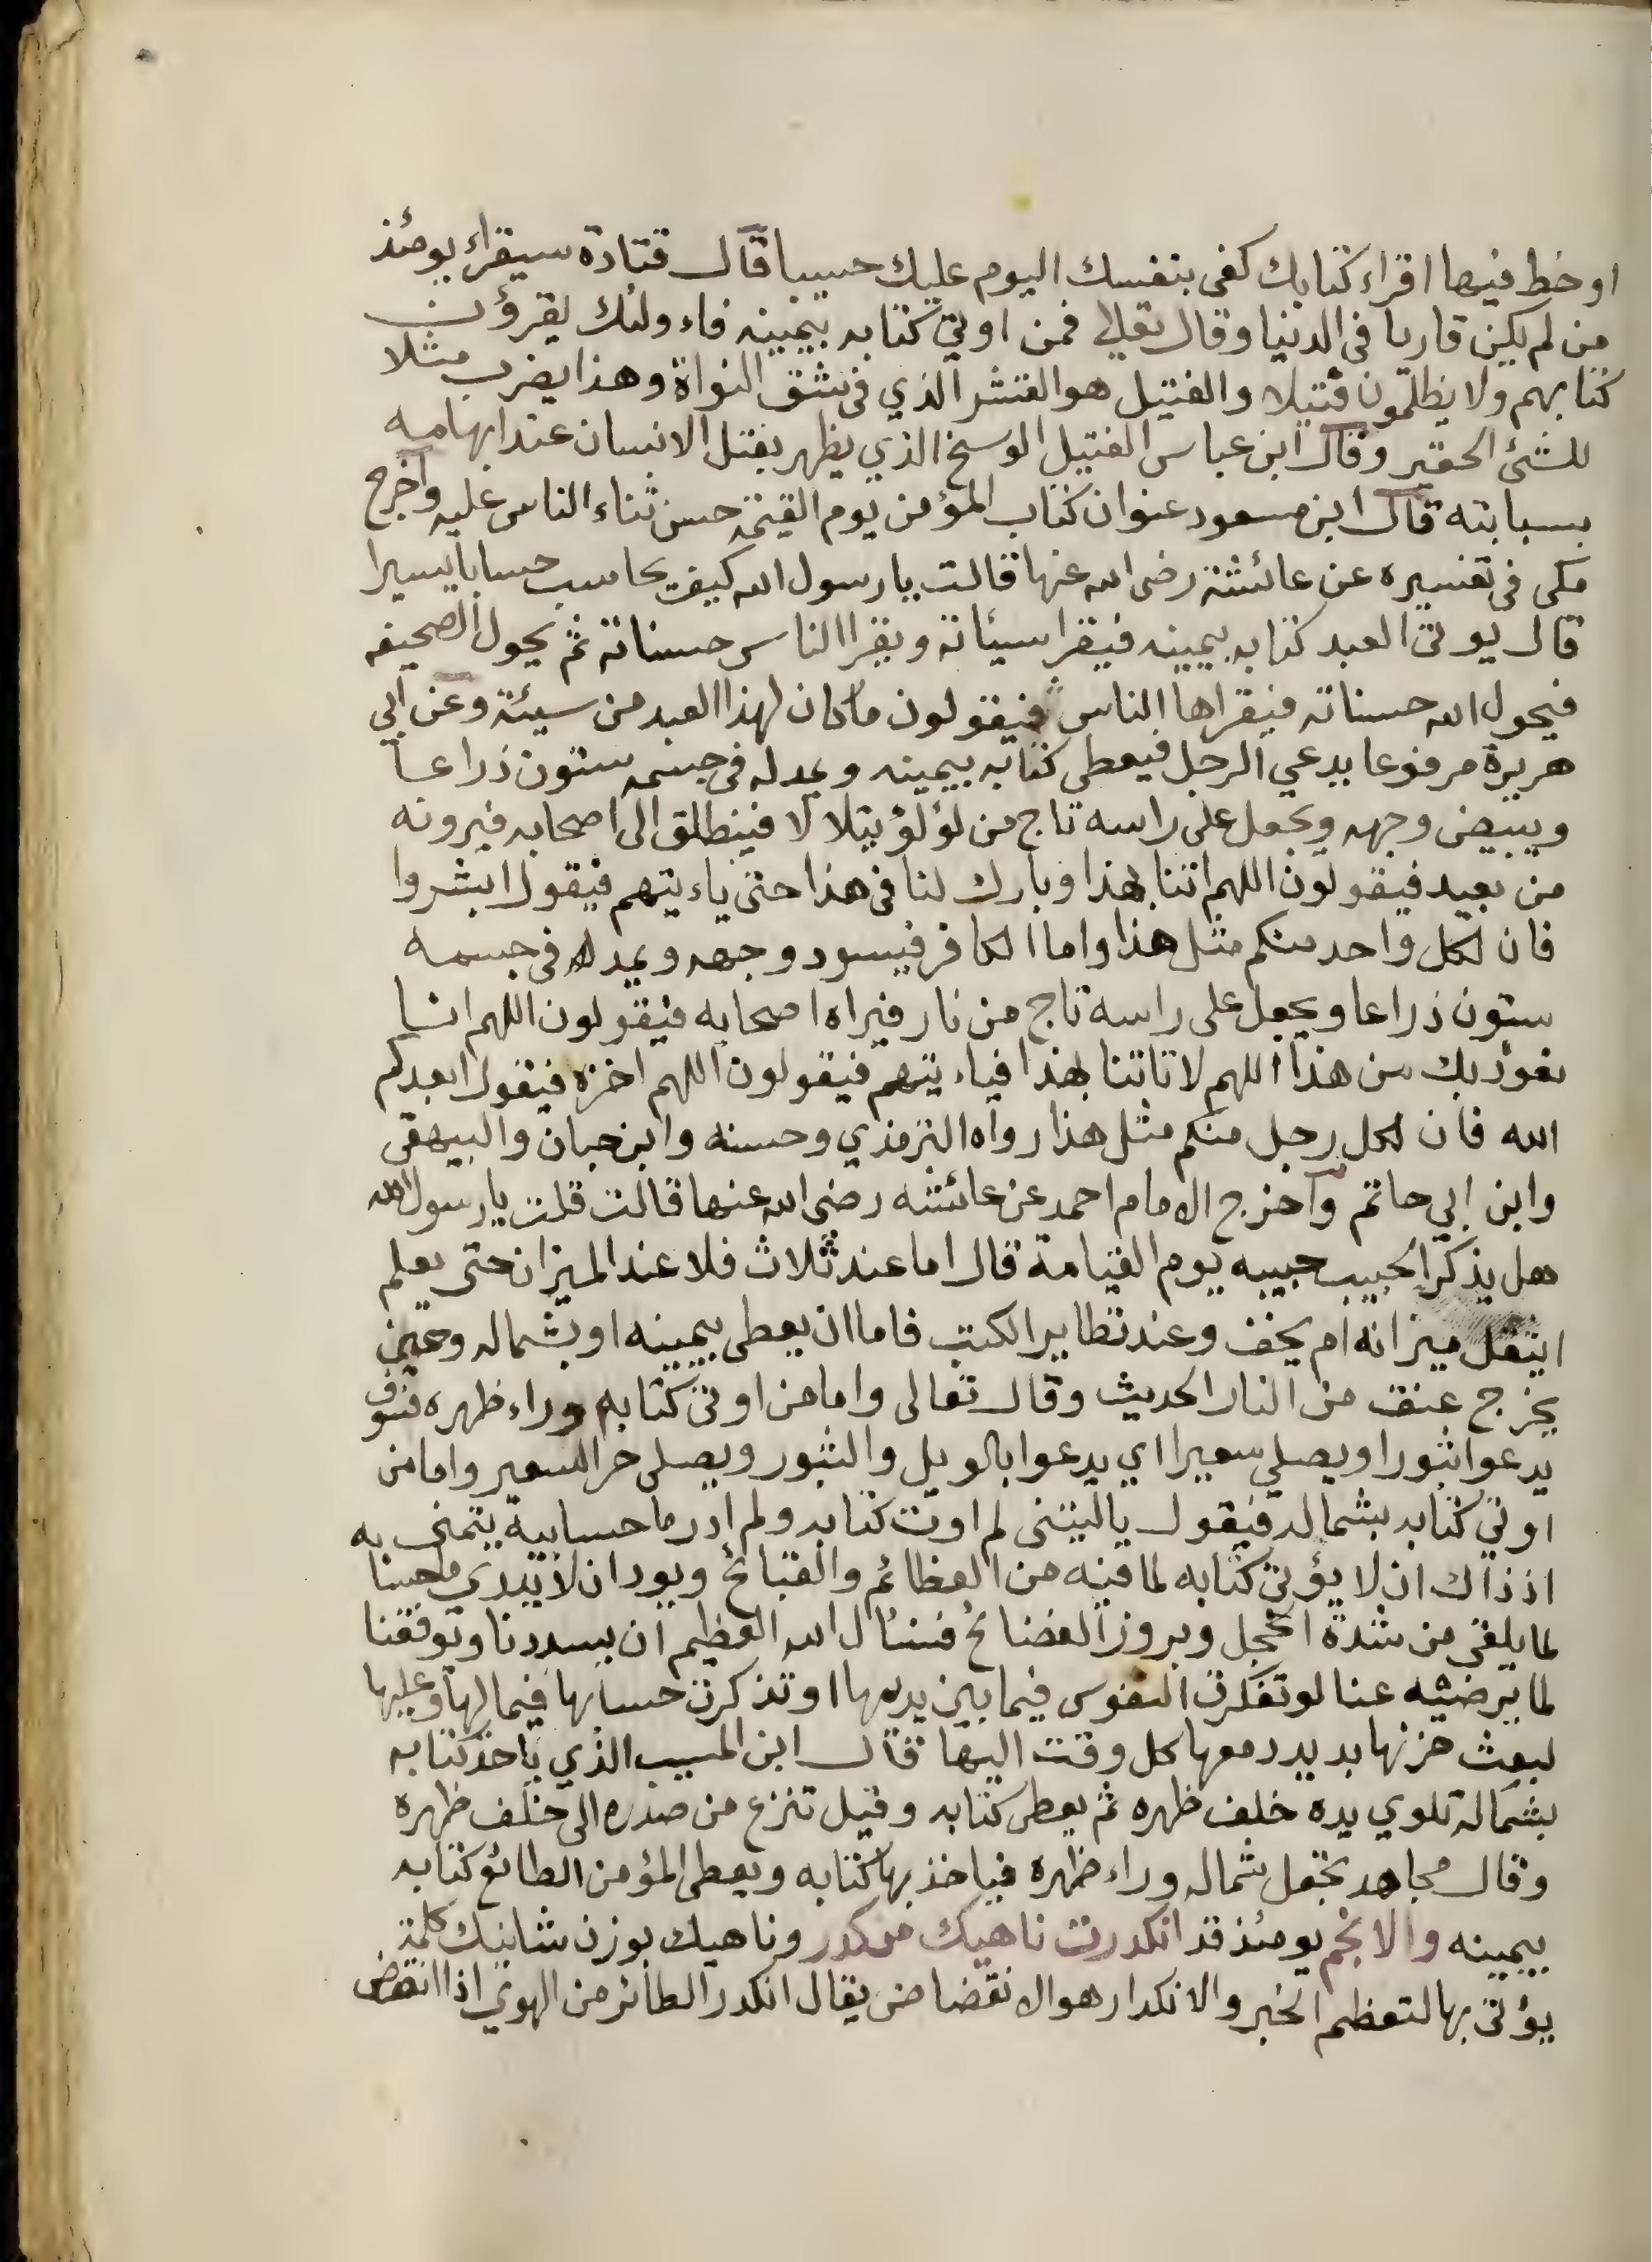 او خط فيها اقراء كتابك كفى بنفسك اليوم عليك حسيبا قال قتادة سيقراء يومئذ
من لم يكن قاريا فى الدنيا وقال تعالى فمن اوتي كتابه بيمينه فاء ولئك يقرؤن
كتابهم ولا يظلمون فتيلا والفتيل هو القشر الذي فى شق النواة وهذا يضرب مثلا
للشئ الحقير وقال ابن عباس الفتيل الوسخ الذي يظهر بفتل الانسان عند ابهامه
بسبابته قال ابن مسعود عنوان كتاب المؤمن يوم القيمة حسن ثناء الناس عليه واخرج
مكى فى تفسيره عن عائشة رضى الله عنها قالت يا رسول الله كيف يحاسب حسابا يسيرا
قال يوتى العبد كتابه بيمينه فيقرا سيئاته ويقرا الناس حسناته ثم يحول الصحيفه
فيحول الله حسناته فيقراها الناس فيقولون ما كان لهذا العبد من سيئة وعن ابي
هريرة مرفوعا يدعي الرجل فيعطى كتابه بيمينه ويمد له فى جسمه ستون ذراعا
ويبيض وجهه ويجعل على راسه تاج من لؤلؤ يتلا لا فينطلق الى اصحابه فيرونه
من بعيد فيقولون اللهم اتنا بهذا وبارك لنا فى هذا حتى ياء يتهم فيقول ابشروا
فان لكل واحد منكم مثل هذا واما الكافر فيسود وجهه ويمد له فى جسمه
ستون ذراعا ويجعل على راسه تاج من نار فيراه اصحابه فيقولون اللهم انا
نعوذ بك من هذا اللهم لا تاتنا بهذا فياء يتهم فيقولون اللهم اخزه فيقول ابعدكم
الله فان لكل رجل منكم مثل هذا رواه الترمذي وحسنه وابن حبان والبيهقى
وابن ابي حاتم واخرج الامام احمد عن عائشه رضى الله عنها قالت قلت يا رسول الله
هل يذكر الحبيب حبيبه يوم القيامة قال اما عند ثلاث فلا عند الميزان حتى يعلم
ايثقل ميزانه ام يخف وعند تطاير الكتب فاما ان يعطى بيمينه او بشماله وحين
يخرج عنق من النار الحديث وقال تعالى واما من اوتى كتابه وراء ظهره فسوف
يدعوا ثبورا ويصلي سعيرا اي يدعوا بالويل والثبور ويصلى حر السعير واما من
اوتي كتابه بشماله فيقول يا ليتنى لم اوت كتابيه ولم ادر ما حسابيه يتمنى به
اذ ذاك ان لا يؤتى كتابه لما فيه من العظائم والقبائح ويود ان لا يدري ما حسا
لما يلقى من شدة الخجل وبروز الفضائح فنسئال الله العظيم ان يسددنا ويوفقنا
لما يرضيه عنا لو تفكرت النفوس فيما بين يديها او تذكرت حسابها فيما لها وعليها
لبعث حزنها بديد دمعها كل وقت اليها قال ابن المسيب الذي ياخذ كتابه
بشماله تلوي يده خلف ظهره ثم يعطى كتابه وقيل تنزع من صدره الى خلف ظهره
وقال مجاهد تجعل شماله وراء ظهره فياخذ بها كتابه ويعطى المؤمن الطائع كتابه
بيمينه والانجم يومئذ قد انكدرت ناهيك من كدر وناهيك بوزن شانيك كلمة
يؤتى بها لتعظم الخبر والانكدار هو الانقضاض يقال انكدر الطائر من الهوي اذا انقض